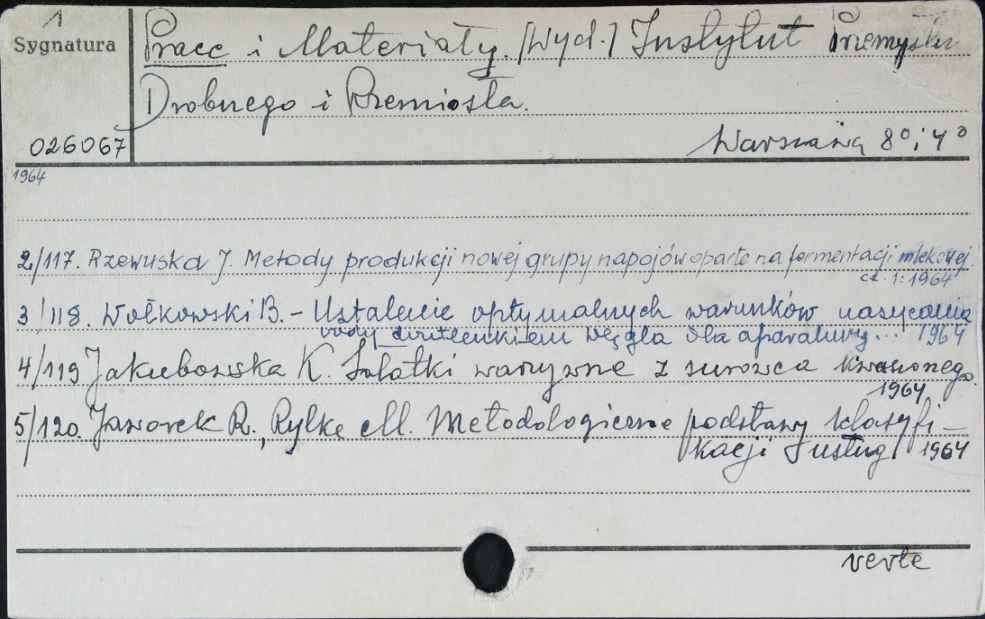 1
Sygnatura
Prace i Materiały. [Wyd.] Instytut Przemysłu
Drobnego i Rzemiosła.
026067
Warszawa 8° i 4°
1964
2/117. Rzewuska J. Metody produkcji nowej grupy napojów oparte na fermentacji mlekowej.
cz. 1: 1964
3/118. Wołkowski B. - Ustalenie optymalnych warunków nasycania
wody dwutlenkiem węgla dla aparatury... 1964
4/119 Jakubowska K. Sałatki warzywne z surowca kwaszonego.
1964
5/120. Jaworek R., Rylke M. Metodologiczne podstawy klasyfi-
kacji usług. 1964
verte